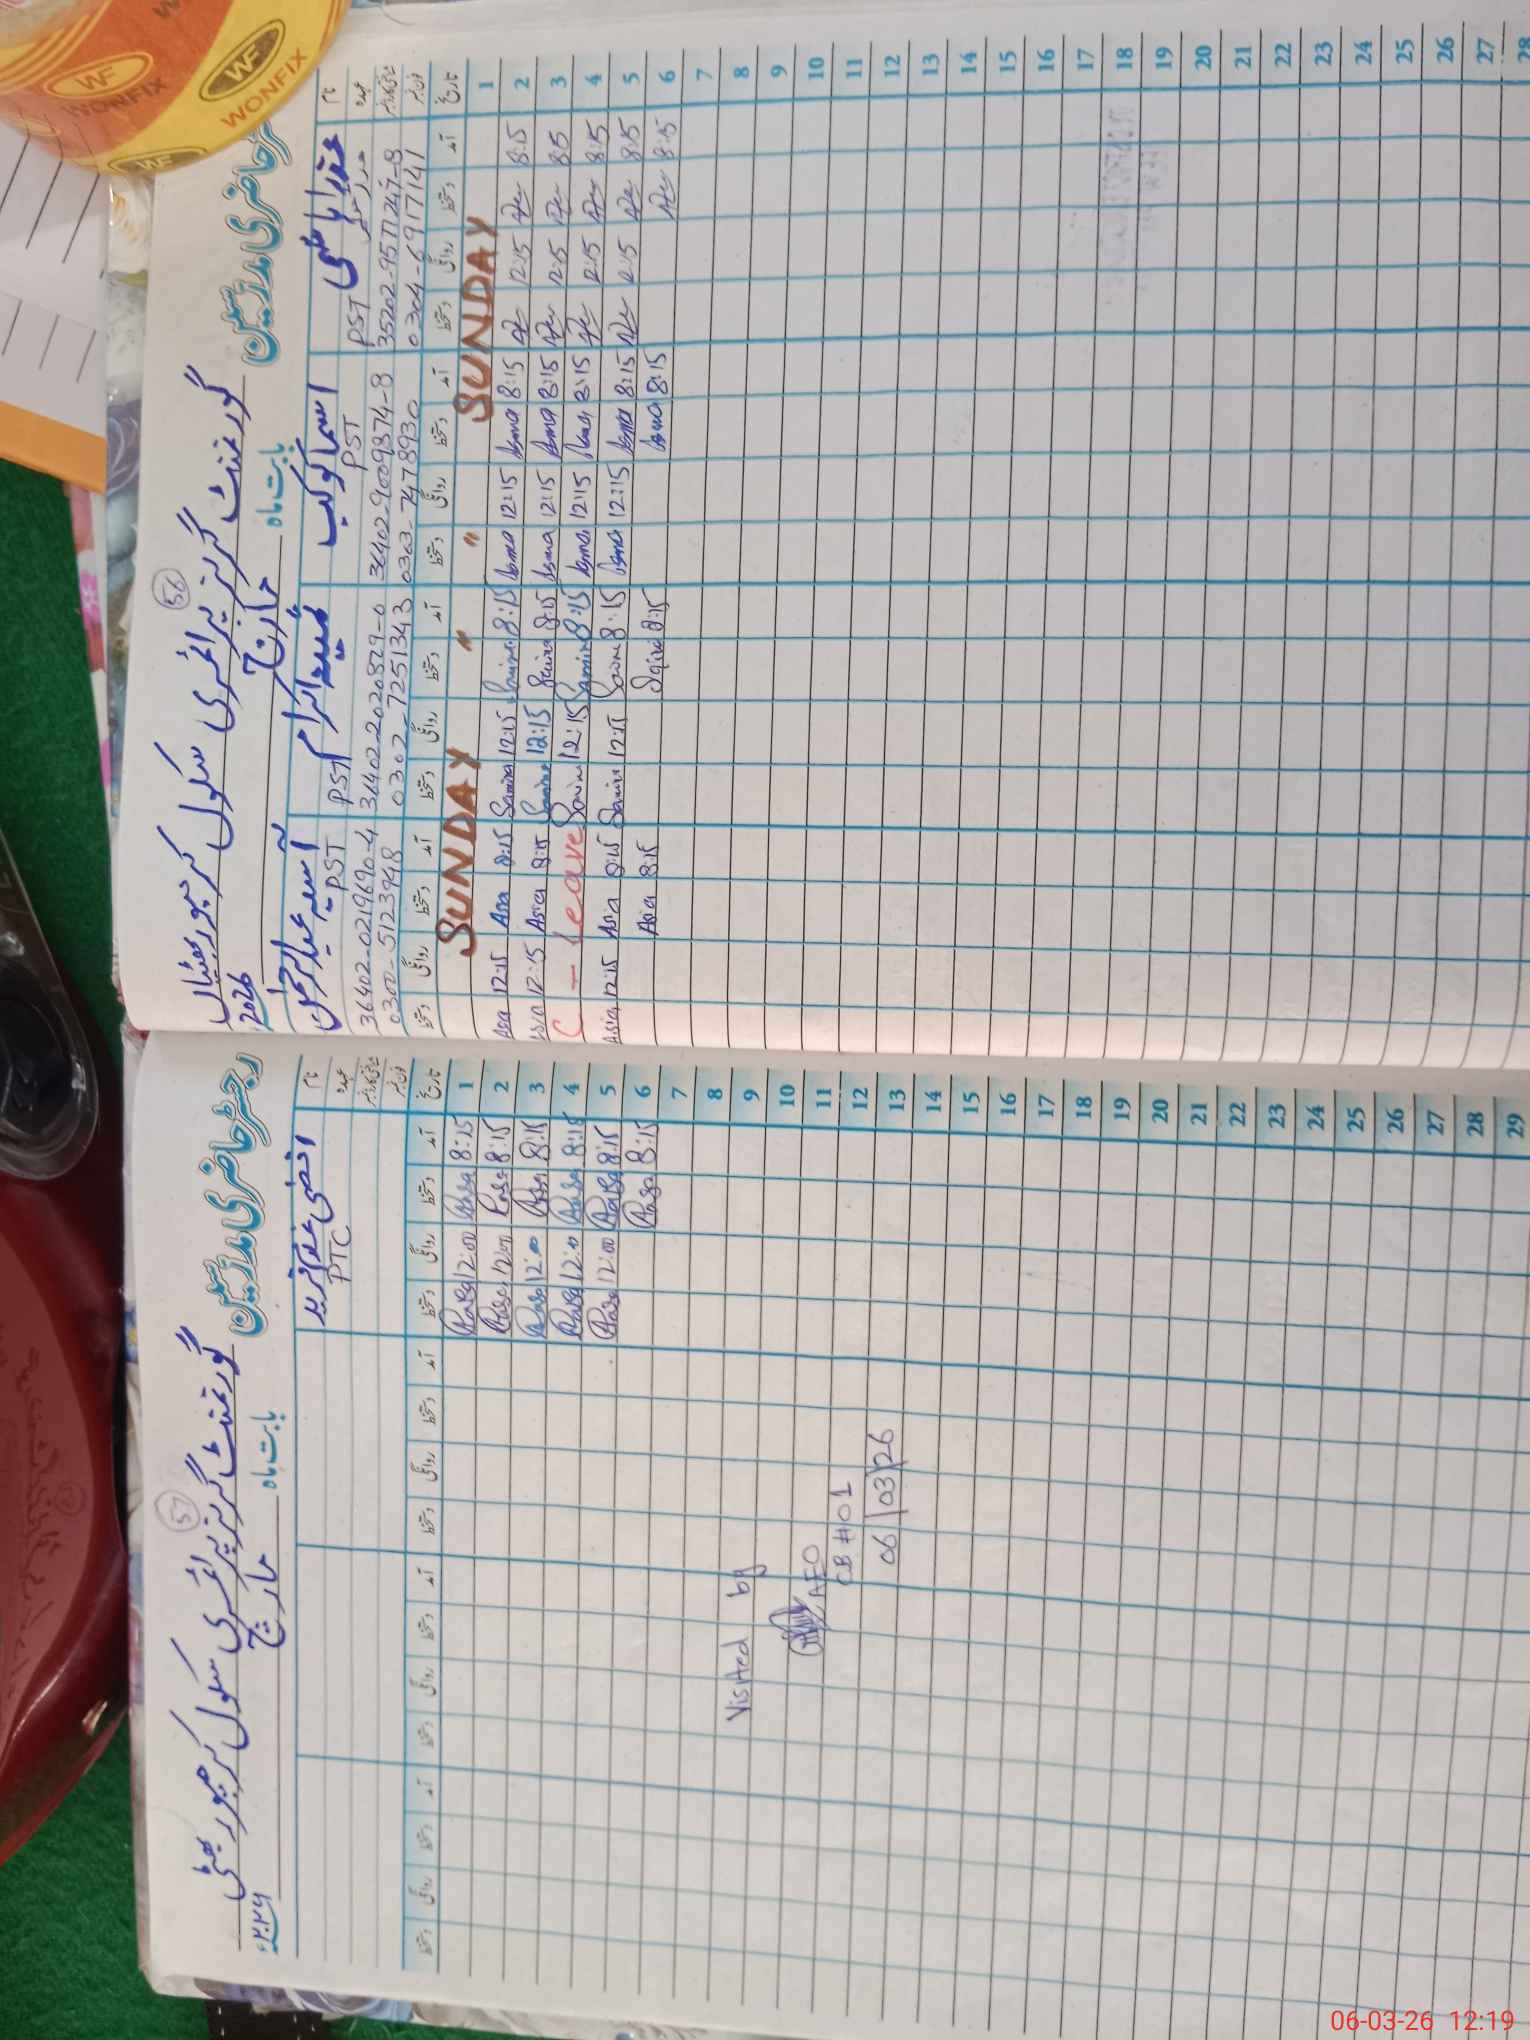 56
گورنمنٹ گرلز پرائمری سکول کرمپور بھٹیاں
رجسٹر حاضری مدرسین
بابت ماہ مارچ 2026
نام
عہدہ
عذرا ہاشمی
PST
35202-9511247-8
0304-6917141
اسما کوکب
PST
36402-9009874-8
0303-7478930
PST
36402-2020829-0
0302-7251343
PST
36402-0219690-4
0300-5123948
تاریخ آمد دستخط روانگی دستخط آمد دستخط روانگی دستخط آمد دستخط روانگی دستخط آمد دستخط روانگی دستخط
1 SUNDAY " " SUNDAY
2 8:15 12:15 8:15 Asma 12:15 Asma 8:15 12:15 Samina 8:15 Asia 12:15 Asia
3 8:15 12:15 8:15 Asma 12:15 Asma 8:15 12:15 Samina 8:15 Asia 12:15 Asia
4 8:15 12:15 8:15 Asma 12:15 Asma 8:15 Samina 12:15 Samina Leave
5 8:15 12:15 8:15 Asma 12:15 Asma 8:15 12:15 8:15 Asia 12:15 Asia
6 8:15 8:15 Asma 8:15 8:15 Asia
7
8
9
10
11
12
13
14
15
16
17
18
19
20
21
22
23
24
25
26
27
28
57
گورنمنٹ گرلز پرائمری سکول کرمپور بھٹی
رجسٹر حاضری مدرسین
بابت ماہ مارچ ۲۰۲۶
نام
عہدہ
PTC
تاریخ آمد دستخط روانگی دستخط آمد دستخط روانگی دستخط آمد دستخط روانگی دستخط آمد دستخط روانگی دستخط
1 8:15 12:00
2 8:15 12:00
3 8:15 12:00
4 8:15 12:00
5 8:15 12:00
6 8:15
7
8
9
10
11
12
13
14
15
16
17
18
19
20
21
22
23
24
25
26
27
28
29
Visited by
AEO
CB # 01
06/03/26
WF
WONFIX
WF
WONFIX
WF
06-03-26 12:19